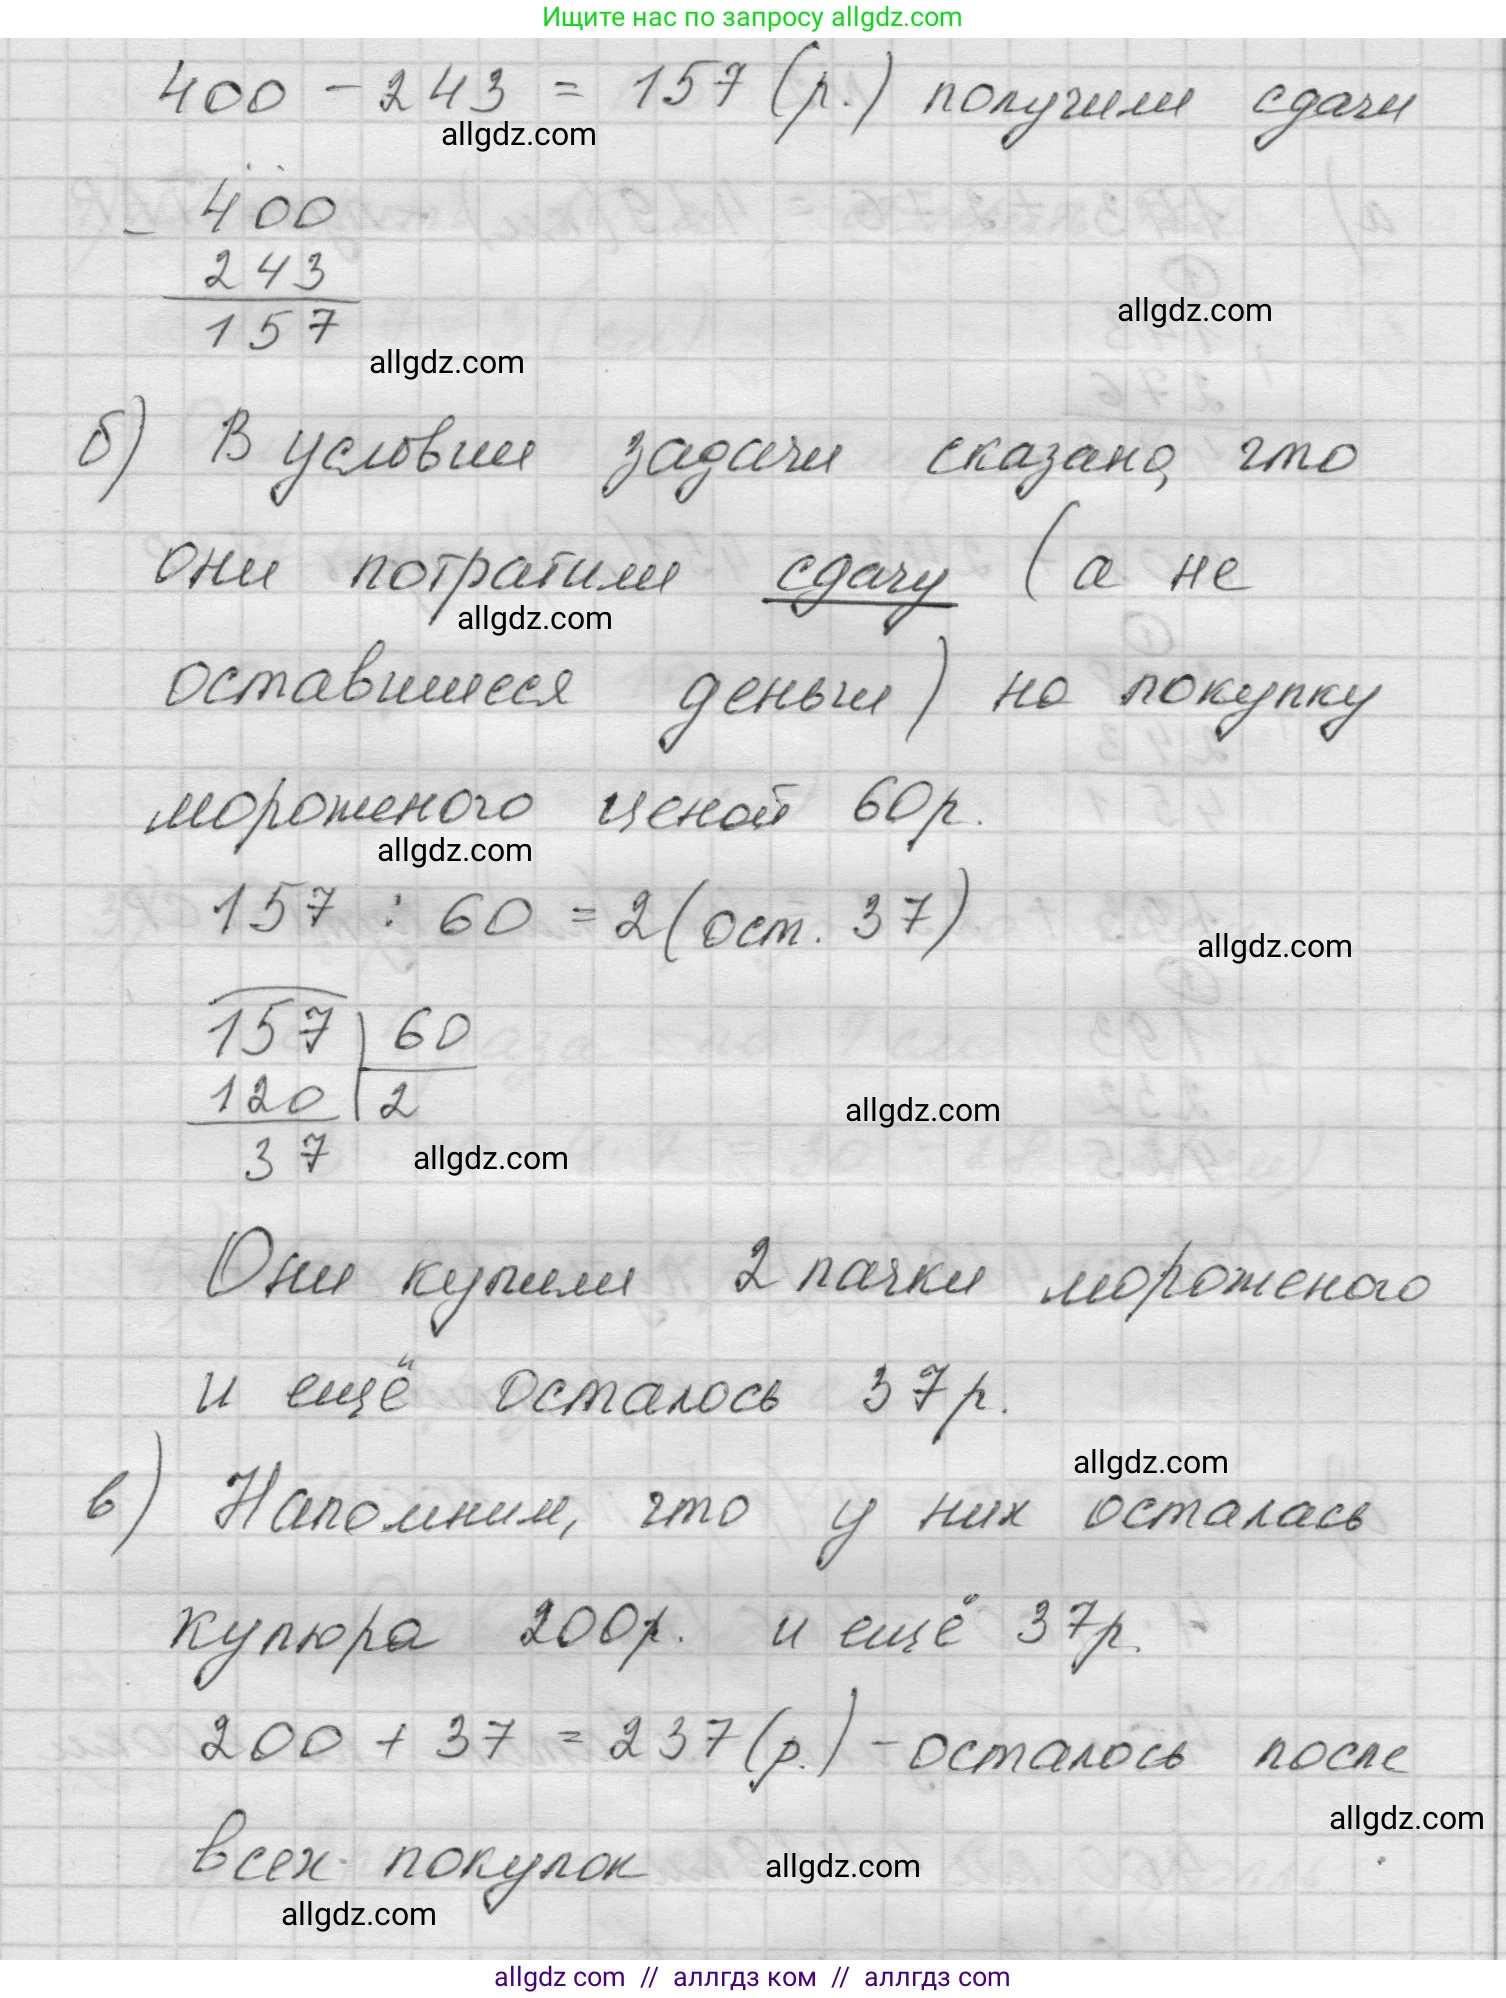 Ищите нас по запросу allgdz.com
400 - 243 = 157 (р.) получили сдачи
allgdz.com
400
- 243
157
allgdz.com
allgdz.com
б) В условии задачи сказано, что
они потратили сдачу (а не
allgdz.com
оставшиеся деньги) на покупку
мороженого ценой 60р.
allgdz.com
157 : 60 = 2 (ост. 37)
allgdz.com
157 60
120 2
allgdz.com
37
allgdz.com
Они купили 2 пачки мороженого
и ещё осталось 37р.
allgdz.com
в) Напомним, что у них осталась
купюра 200р. и ещё 37р.
200 + 37 = 237 (р.) - осталось после
allgdz.com
всех покупок
allgdz.com
allgdz.com
allgdz com // аллгдз ком // аллгдз com